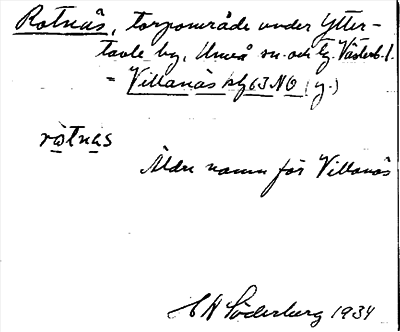 Rotnäs, torpområde under Ytter-
tavle by, Umeå sn. och tg. Västerb. l.
= Villanäs kbl 63 NO (y.)
rotnas
Äldre namn för Villanäs
E H Söderberg 1934